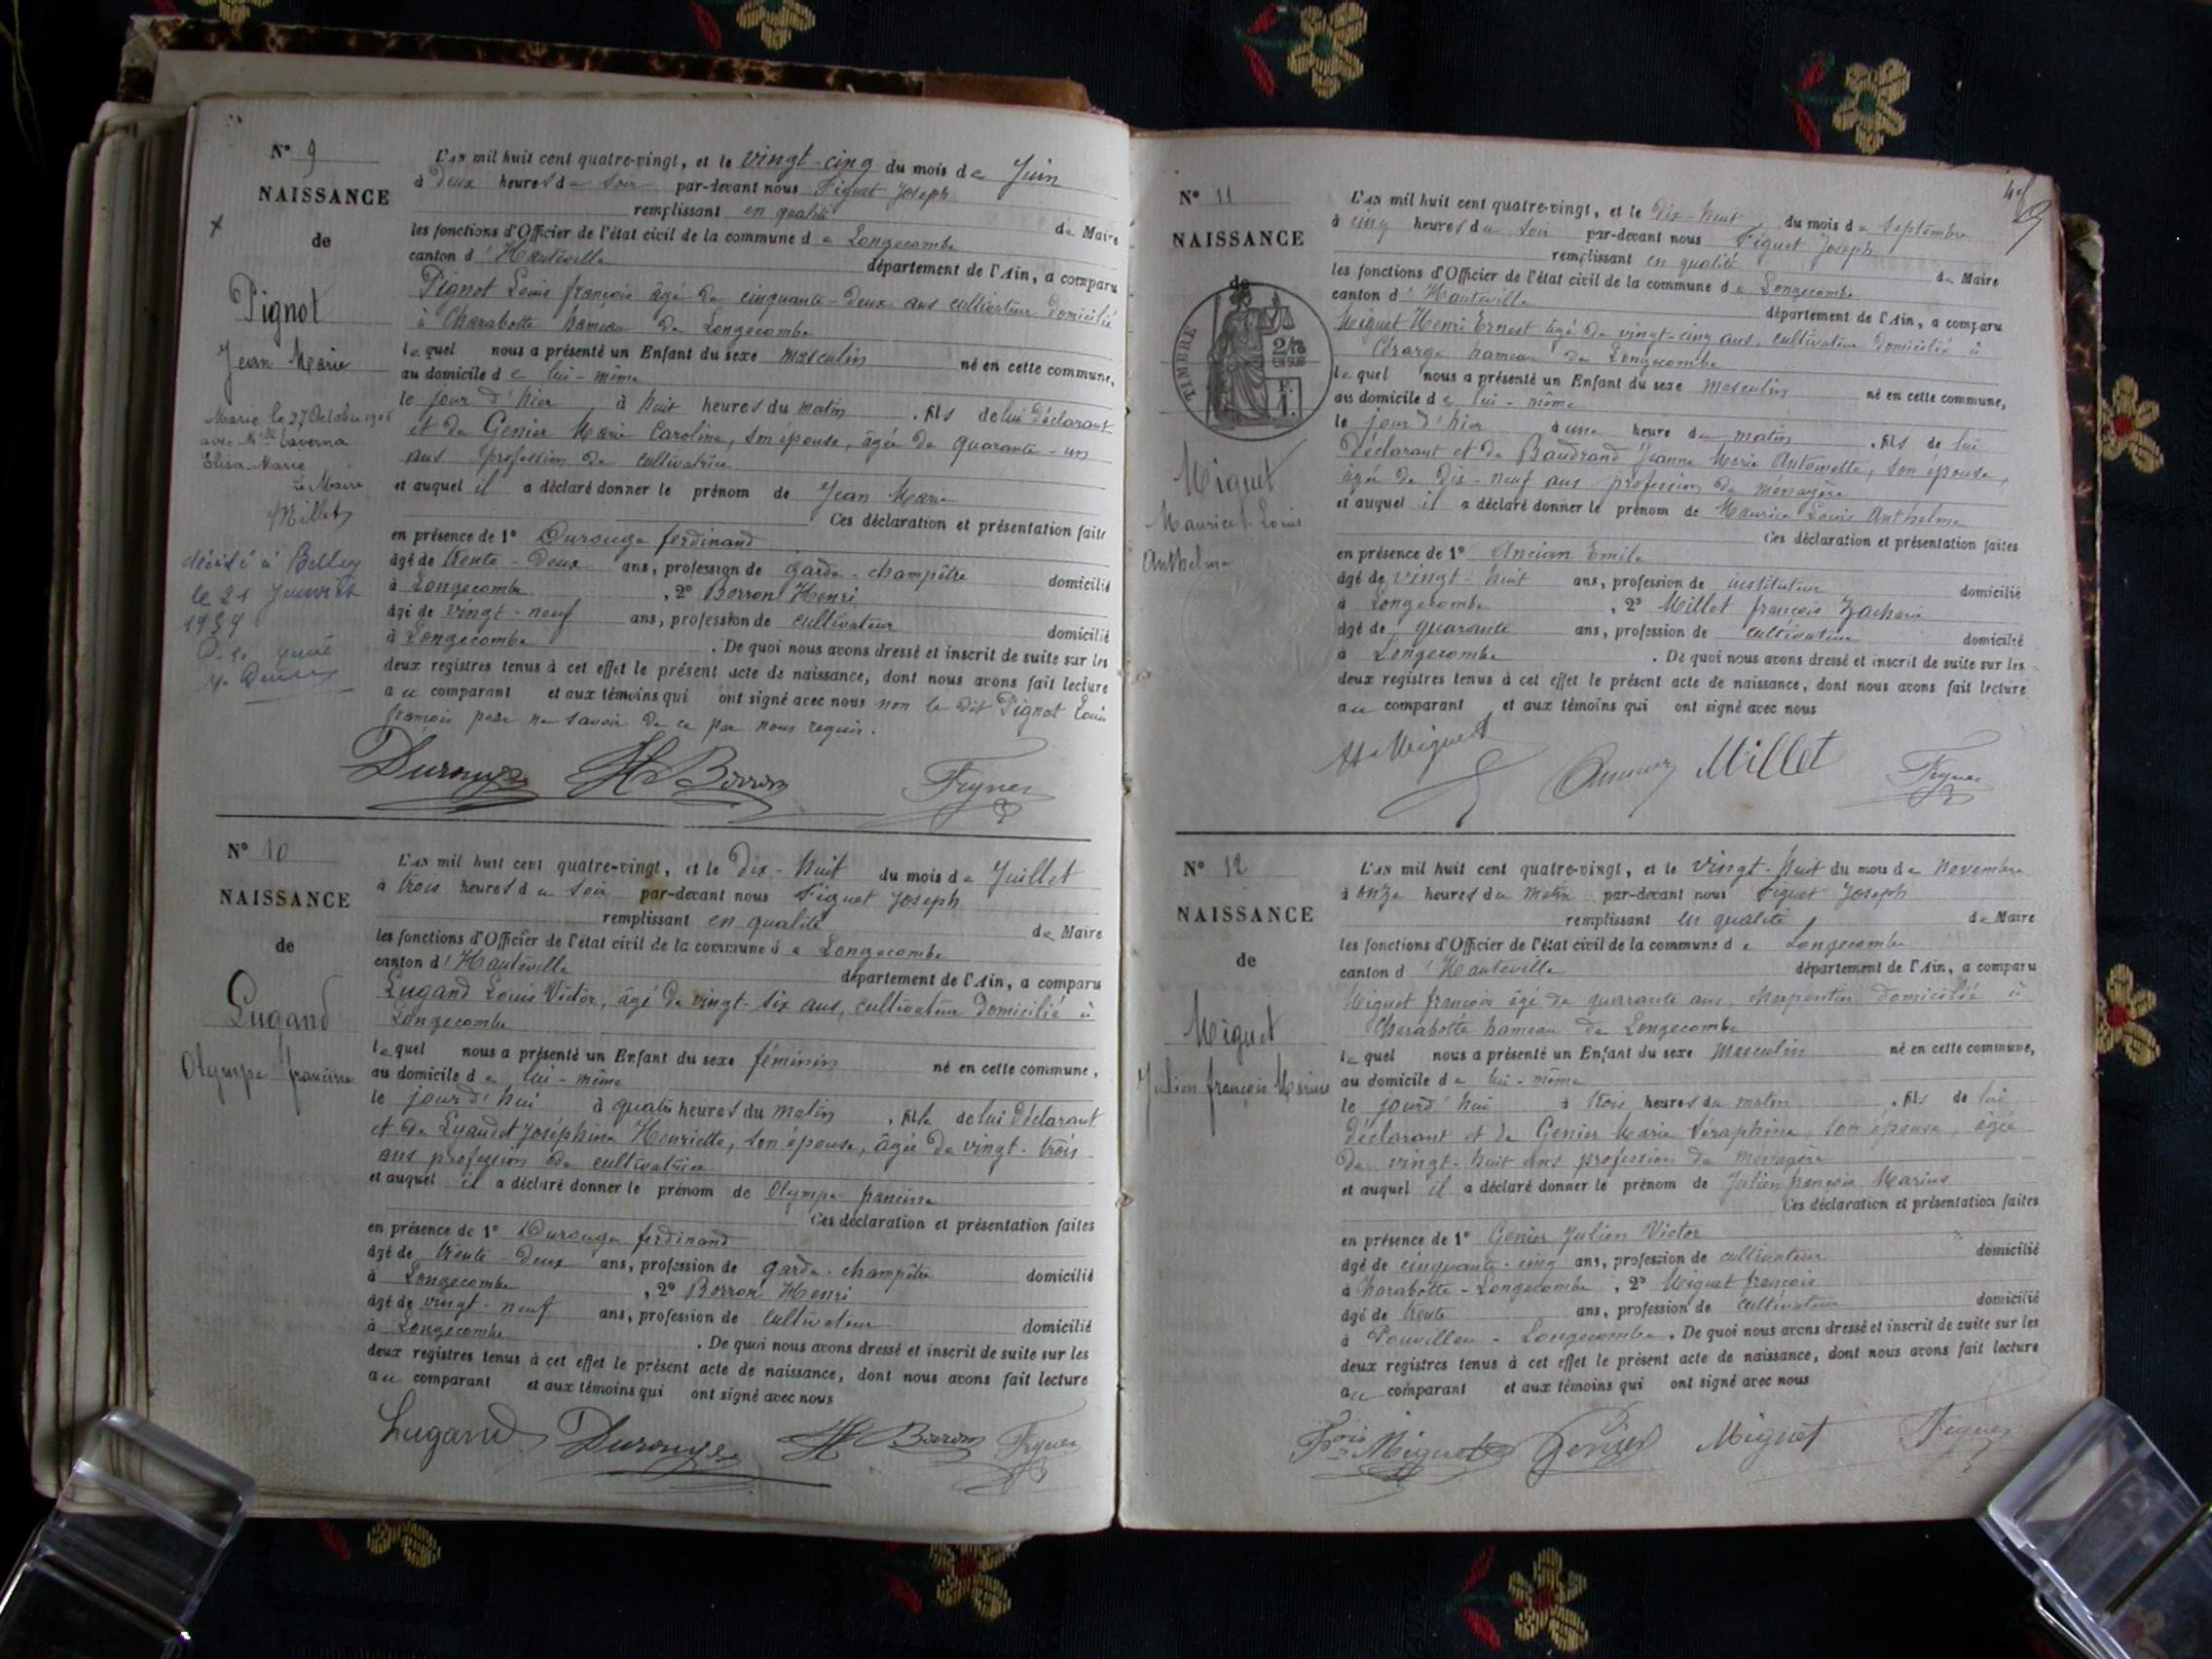 N° 9
NAISSANCE
de
Pignot
Jean Marie
Marié le 27 Octobre 1906
avec Mlle Taverna
Elisa-Marie
Le Maire
Millet
décédé à Belley
le 21 Janvier
L'AN mil huit cent quatre-vingt, et le vingt-cinq du mois de Juin
à deux heures du soir par-devant nous Figuet Joseph
remplissant en qualité de Maire
les fonctions d'Officier de l'état civil de la commune de Longecombe
canton d'Hauteville département de l'Ain, a comparu
Pignot Louis françois âgé de cinquante-deux ans cultivateur domicilié
à Charabotte hameau de Longecombe
lequel nous a présenté un Enfant du sexe masculin né en cette commune,
au domicile de lui-même
le jour d'hier à huit heures du matin . fils de lui déclarant
et de Genier Marie Caroline, son épouse, âgée de quarante-un
ans profession de cultivatrice
et auquel il a déclaré donner le prénom de Jean Marie
Ces déclaration et présentation faites
en présence de 1° Durouge ferdinand
âgé de trente-deux ans, profession de garde-champêtre domicilié
à Longecombe , 2° Borron Henri
âgé de vingt-neuf ans, profession de cultivateur domicilié
à Longecombe . De quoi nous avons dressé et inscrit de suite sur les
deux registres tenus à cet effet le présent acte de naissance, dont nous avons fait lecture
au comparant et aux témoins qui ont signé avec nous non le dit Pignot Louis
françois pour ne savoir de ce par nous requis.
Durouge H Borron
N° 10
NAISSANCE
de
Lugand
Olympe francine
L'AN mil huit cent quatre-vingt, et le dix-huit du mois de Juillet
à trois heures du soir par-devant nous Figuet Joseph
remplissant en qualité de Maire
les fonctions d'Officier de l'état civil de la commune de Longecombe
canton d'Hauteville département de l'Ain, a comparu
Lugand Louis Victor, âgé de vingt-six ans, cultivateur domicilié à
Longecombe
lequel nous a présenté un Enfant du sexe féminin né en cette commune,
au domicile de lui-même
le jourd'hui à quatre heures du matin . fille de lui déclarant
et de Lyaudet Joséphine Henriette, son épouse, âgée de vingt-trois
ans profession de cultivatrice
et auquel il a déclaré donner le prénom de Olympe francine
Ces déclaration et présentation faites
en présence de 1° Durouge ferdinand
âgé de trente-deux ans, profession de garde-champêtre domicilié
à Longecombe , 2° Borron Henri
âgé de vingt-neuf ans, profession de cultivateur domicilié
à Longecombe . De quoi nous avons dressé et inscrit de suite sur les
deux registres tenus à cet effet le présent acte de naissance, dont nous avons fait lecture
au comparant et aux témoins qui ont signé avec nous
Lugand Durouge H Borron
N° 11
NAISSANCE
de
TIMBRE
Miguet
Maurice Louis
Anthelme
L'AN mil huit cent quatre-vingt, et le dix-huit du mois de septembre
à cinq heures du soir par-devant nous Figuet Joseph
remplissant en qualité de Maire
les fonctions d'Officier de l'état civil de la commune de Longecombe
canton d'Hauteville département de l'Ain, a comparu
Miguet Henri Ernest âgé de vingt-cinq ans, cultivateur domicilié à
hameau de Longecombe
lequel nous a présenté un Enfant du sexe masculin né en cette commune,
au domicile de lui-même
le jour d'hier à une heure du matin . fils de lui
déclarant et de Baudrand Jeanne Marie Antoinette, son épouse,
âgée de dix-neuf ans profession de ménagère
et auquel il a déclaré donner le prénom de Maurice Louis Anthelme
Ces déclaration et présentation faites
en présence de 1° Ancian Emile
âgé de vingt-huit ans, profession de instituteur domicilié
à Longecombe , 2° Millet françois Zacharie
âgé de quarante ans, profession de cultivateur domicilié
à Longecombe . De quoi nous avons dressé et inscrit de suite sur les
deux registres tenus à cet effet le présent acte de naissance, dont nous avons fait lecture
au comparant et aux témoins qui ont signé avec nous
Miguet Millet
N° 12
NAISSANCE
de
Miguet
Julien françois Marius
L'AN mil huit cent quatre-vingt, et le vingt-huit du mois de novembre
à onze heures du matin par-devant nous Figuet Joseph
remplissant en qualité de Maire
les fonctions d'Officier de l'état civil de la commune de Longecombe
canton d'Hauteville département de l'Ain, a comparu
Miguet françois âgé de quarante ans, charpentier domicilié à
Charabotte hameau de Longecombe
lequel nous a présenté un Enfant du sexe masculin né en cette commune,
au domicile de lui-même
le jourd'hui à trois heures du matin . fils de lui
déclarant et de Genier Marie Séraphine, son épouse, âgée
de vingt-huit ans profession de ménagère
et auquel il a déclaré donner le prénom de Julien françois Marius
Ces déclaration et présentation faites
en présence de 1° Genier Julien Victor
âgé de cinquante-cinq ans, profession de cultivateur domicilié
à Charabotte-Longecombe , 2° Miguet françois
âgé de trente ans, profession de cultivateur domicilié
à Longecombe . De quoi nous avons dressé et inscrit de suite sur les
deux registres tenus à cet effet le présent acte de naissance, dont nous avons fait lecture
au comparant et aux témoins qui ont signé avec nous
Fois Miguet Genier Miguet